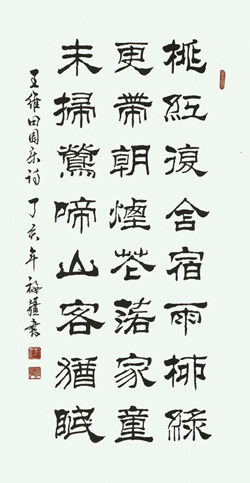 桃紅復含宿雨柳綠
更帶朝煙花落家童
未掃鶯啼山客猶眠
王維田园乐诗 丁亥年